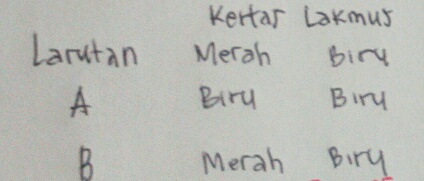 Kertas Lakmus
Larutan Merah Biru
A Biru Biru
B Merah Biru